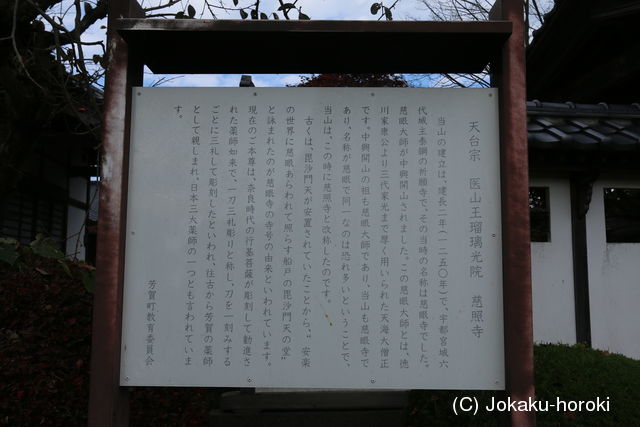 天台宗　医山王瑠璃光院　慈照寺
当山の建立は、建長二年（一二五〇年）で、宇都宮城六
代城主泰綱の祈願寺で、その当時の名称は慈眼寺でした。
慈眼大師が中興開山されました。この慈眼大師とは、徳
川家康公より三代家光まで厚く用いられた天海大僧正
です。中興開山の祖も慈眼大師であり、当山も慈眼寺で
あり、名称が慈眼で同一なのは恐れ多いということで、
当山は、この時に慈照寺と改称したのです。
古くは、毘沙門天が安置されていたことから、“安楽
の世界に慈眼あらわれて照らす船戸の毘沙門天の堂”
と詠まれたのが慈眼寺の寺号の由来といわれています。
現在のご本尊は、奈良時代の行基菩薩が彫刻して勧進さ
れた薬師如来で、一刀三礼彫りと称し、刀を一刻みする
ごとに三礼して彫刻したといわれ、往古から芳賀の薬師
として親しまれ、日本三大薬師の一つとも言われていま
す。
芳賀町教育委員会
(C) Jokaku-horoki